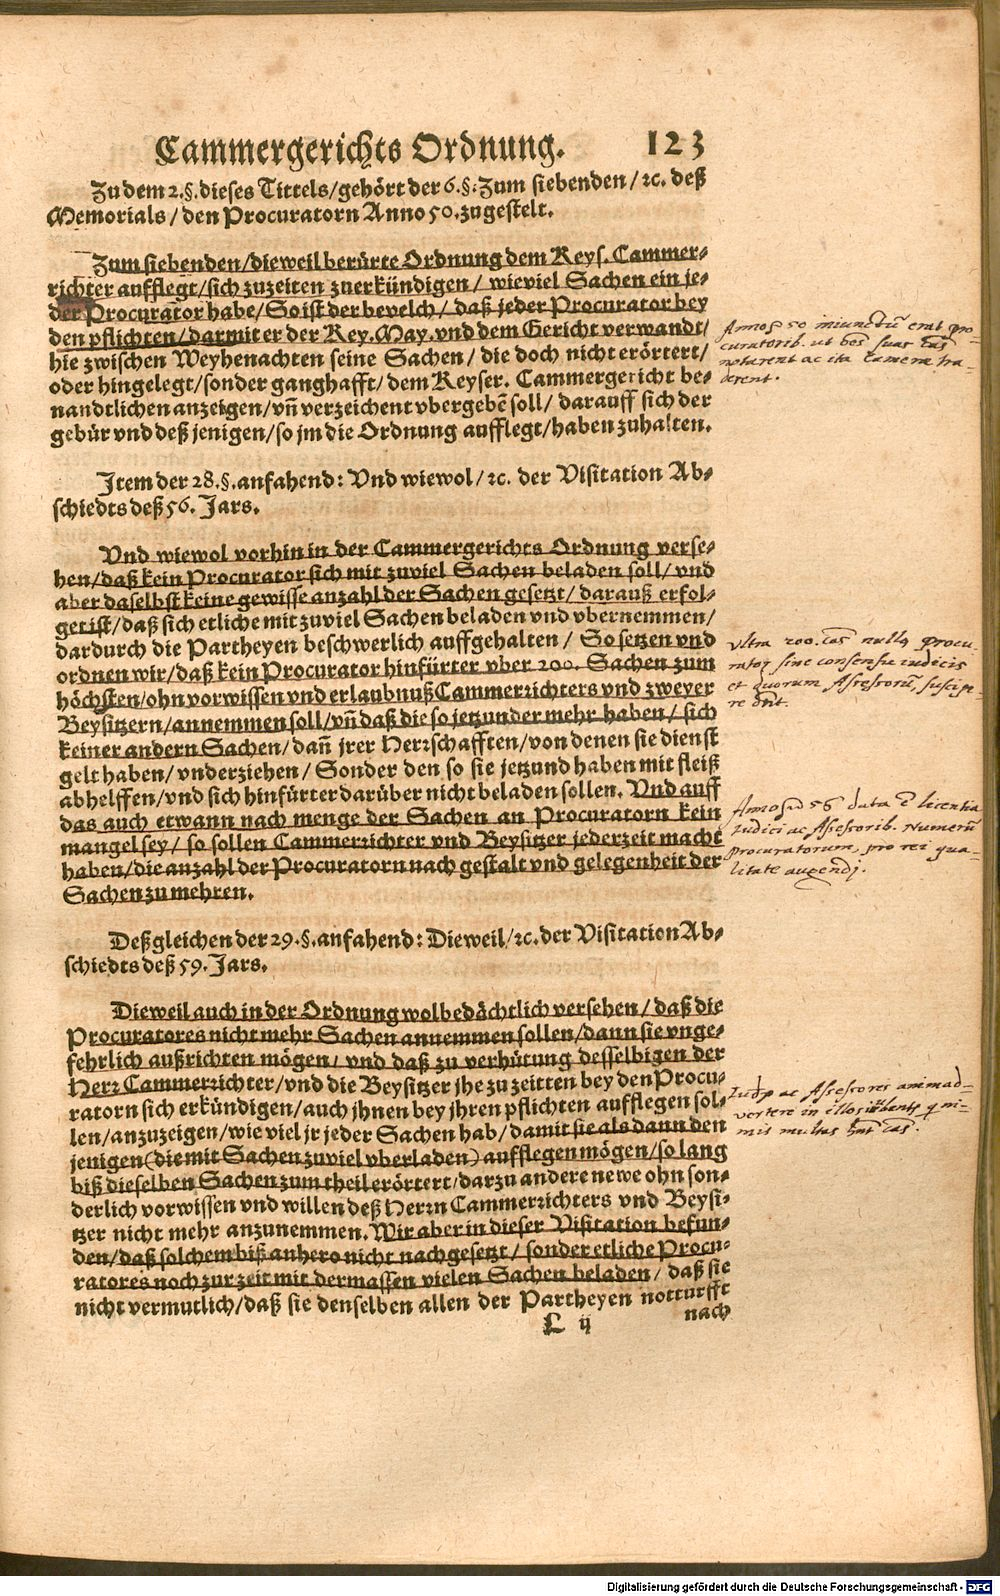 Cammergerichts Ordnung. 123
Zu dem 2.§. dieses Tittels/gehört der 6.§. Zum siebenden/ ꝛc. deß
Memorials/ den Procuratorn Anno 50. zugestelt.
Zum siebenden/dieweil berürte Ordnung dem Keys. Cammer-
richter aufflegt/sich zuzeiten zuerkündigen/ wieviel Sachen ein je-
der Procurator habe/ So ist der bevelch/ daß jeder Procurator bey
den pflichten/darmit er der Key. May. vnd dem Gericht verwandt/
hie zwischen Weyhenachten seine Sachen/ die doch nicht erörtert/
oder hingelegt/sonder ganghafft/ dem Keyser. Cammergericht be-
nandtlichen anzeigen/ vñ verzeichent vbergebẽ soll/ darauff sich der
gebür vnd deß jenigen/so jm die Ordnung aufflegt/haben zuhalten.
Item der 28.§. anfahend: Vnd wiewol/ ꝛc. der Visitation Ab-
schiedts deß 56. Jars.
Vnd wiewol vorhin in der Cammergerichts Ordnung verse-
hen/daß kein Procurator sich mit zuviel Sachen beladen soll/ vnd
aber daselbst keine gewisse anzahl der Sachen gesetzt/ darauß erfol-
get ist/ daß sich etliche mit zuviel Sachen beladen vnd vbernemmen/
dardurch die Partheyen beschwerlich auffgehalten/ So setzen vnd
ordnen wir/daß kein Procurator hinfürter vber 200. Sachen zum
höchsten/ohn vorwissen vnd erlaubnuß Cammerrichters vnd zweyer
Beysitzern/annemmen soll/ vñ daß die so jetzunder mehr haben/ sich
keiner andern Sachen/ dañ jrer Herrschafften/von denen sie dienst
gelt haben/ vnderziehen/ Sonder den so sie jetzund haben mit fleiß
abhelffen/vnd sich hinfürter darüber nicht beladen sollen. Vnd auff
das auch etwann nach menge der Sachen an Procuratorn kein
mangel sey/ so sollen Cammerrichter vnd Beysitzer jederzeit macht
haben/die anzahl der Procuratorn nach gestalt vnd gelegenheit der
Sachen zu mehren.
Deßgleichen der 29.§. anfahend: Dieweil/ ꝛc. der Visitation Ab-
schiedts deß 59. Jars.
Dieweil auch in der Ordnung wolbedächtlich versehen/ daß die
Procuratores nicht mehr Sachen annemmen sollen/dann sie vnge-
fehrlich außrichten mögen/ vnd daß zu verhütung desselbigen der
Herr Cammerrichter/vnd die Beysitzer jhe zu zeitten bey den Procu-
ratorn sich erkündigen/auch jhnen bey jhren pflichten aufflegen sol-
len/anzuzeigen/wie viel jr jeder Sachen hab/ damit sie als dann den
jenigen (die mit Sachen zuviel vberladen) aufflegen mögen/so lang
biß dieselben Sachen zum theil erörtert/darzu andere newe ohn son-
derlich vorwissen vnd willen deß Herrn Cammerrichters vnd Beysi-
tzer nicht mehr anzunemmen. Wir aber in dieser Visitation befun-
den/daß solchem biß anhero nicht nachgesetzt/ sonder etliche Procu-
ratores noch zur zeit mit dermassen vielen Sachen beladen/ daß sie
nicht vermutlich/daß sie denselben allen der Partheyen notturfft
L ij nach
Anno 50 iniunctũ erat pro-
curatorib. ut hos suas cãs
notarent ac ita Camerae tra-
derent.
Vltra 200. cas nullq procu-
rator sine consensu iudicis
et quorum Assessorũ, suscipe-
re dnt.
Anno 56 data ẽ licentia
Iudici ac Assessorib. Numerũ
procuratorum, pro rei qua-
litate augendj.
ac Assessores animad-
vertere in illos nj-
mis multas cãs.
Digitalisierung gefördert durch die Deutsche Forschungsgemeinschaft - DFG